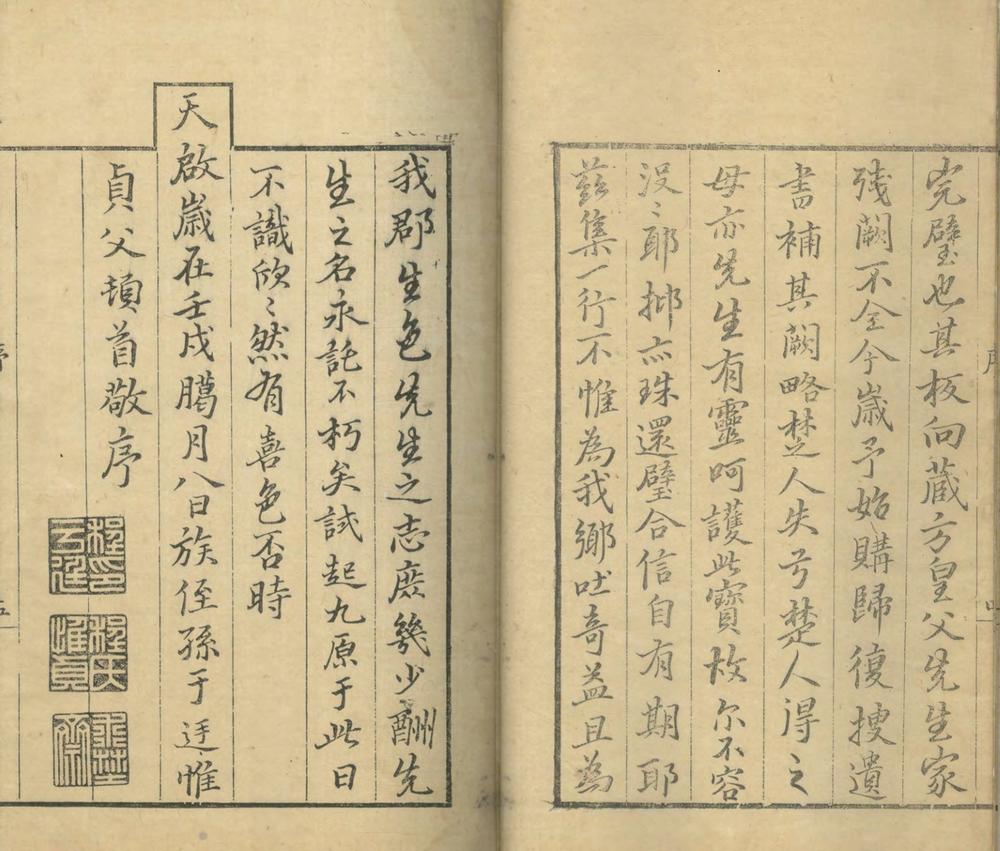 完璧也其板向藏方皇父先生家
殘闕不全今歲予始購歸復搜遺
書補其闕略楚人失弓楚人得之
毋亦先生有靈呵護此寶故尔不容
沒〻耶抑亦珠還璧合信自有期耶
茲集一行不惟為我鄉吐奇益且為
我郡生色先生之志庶幾少酬先
生之名永託不朽矣試起九原于此日
不識欣〻然有喜色否時
天啟歲在壬戌臈月八日族侄孫于廷惟
貞父頓首敬序
序
五
程氏惟貞